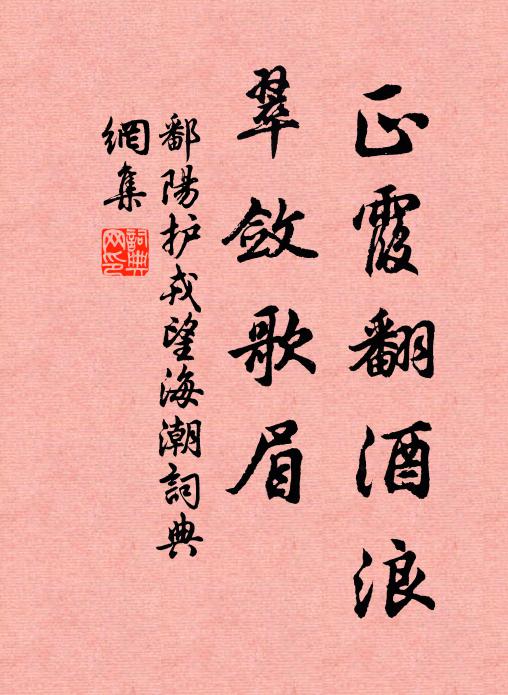 正霞翻酒浪
翠斂歌眉
鄱陽护戎望海潮詞典
網集
詞典
网印